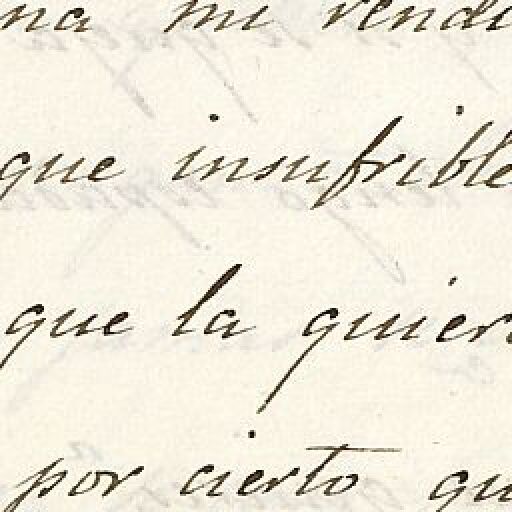 na mi rendi
que insufrible
que la quier
por cierto qu